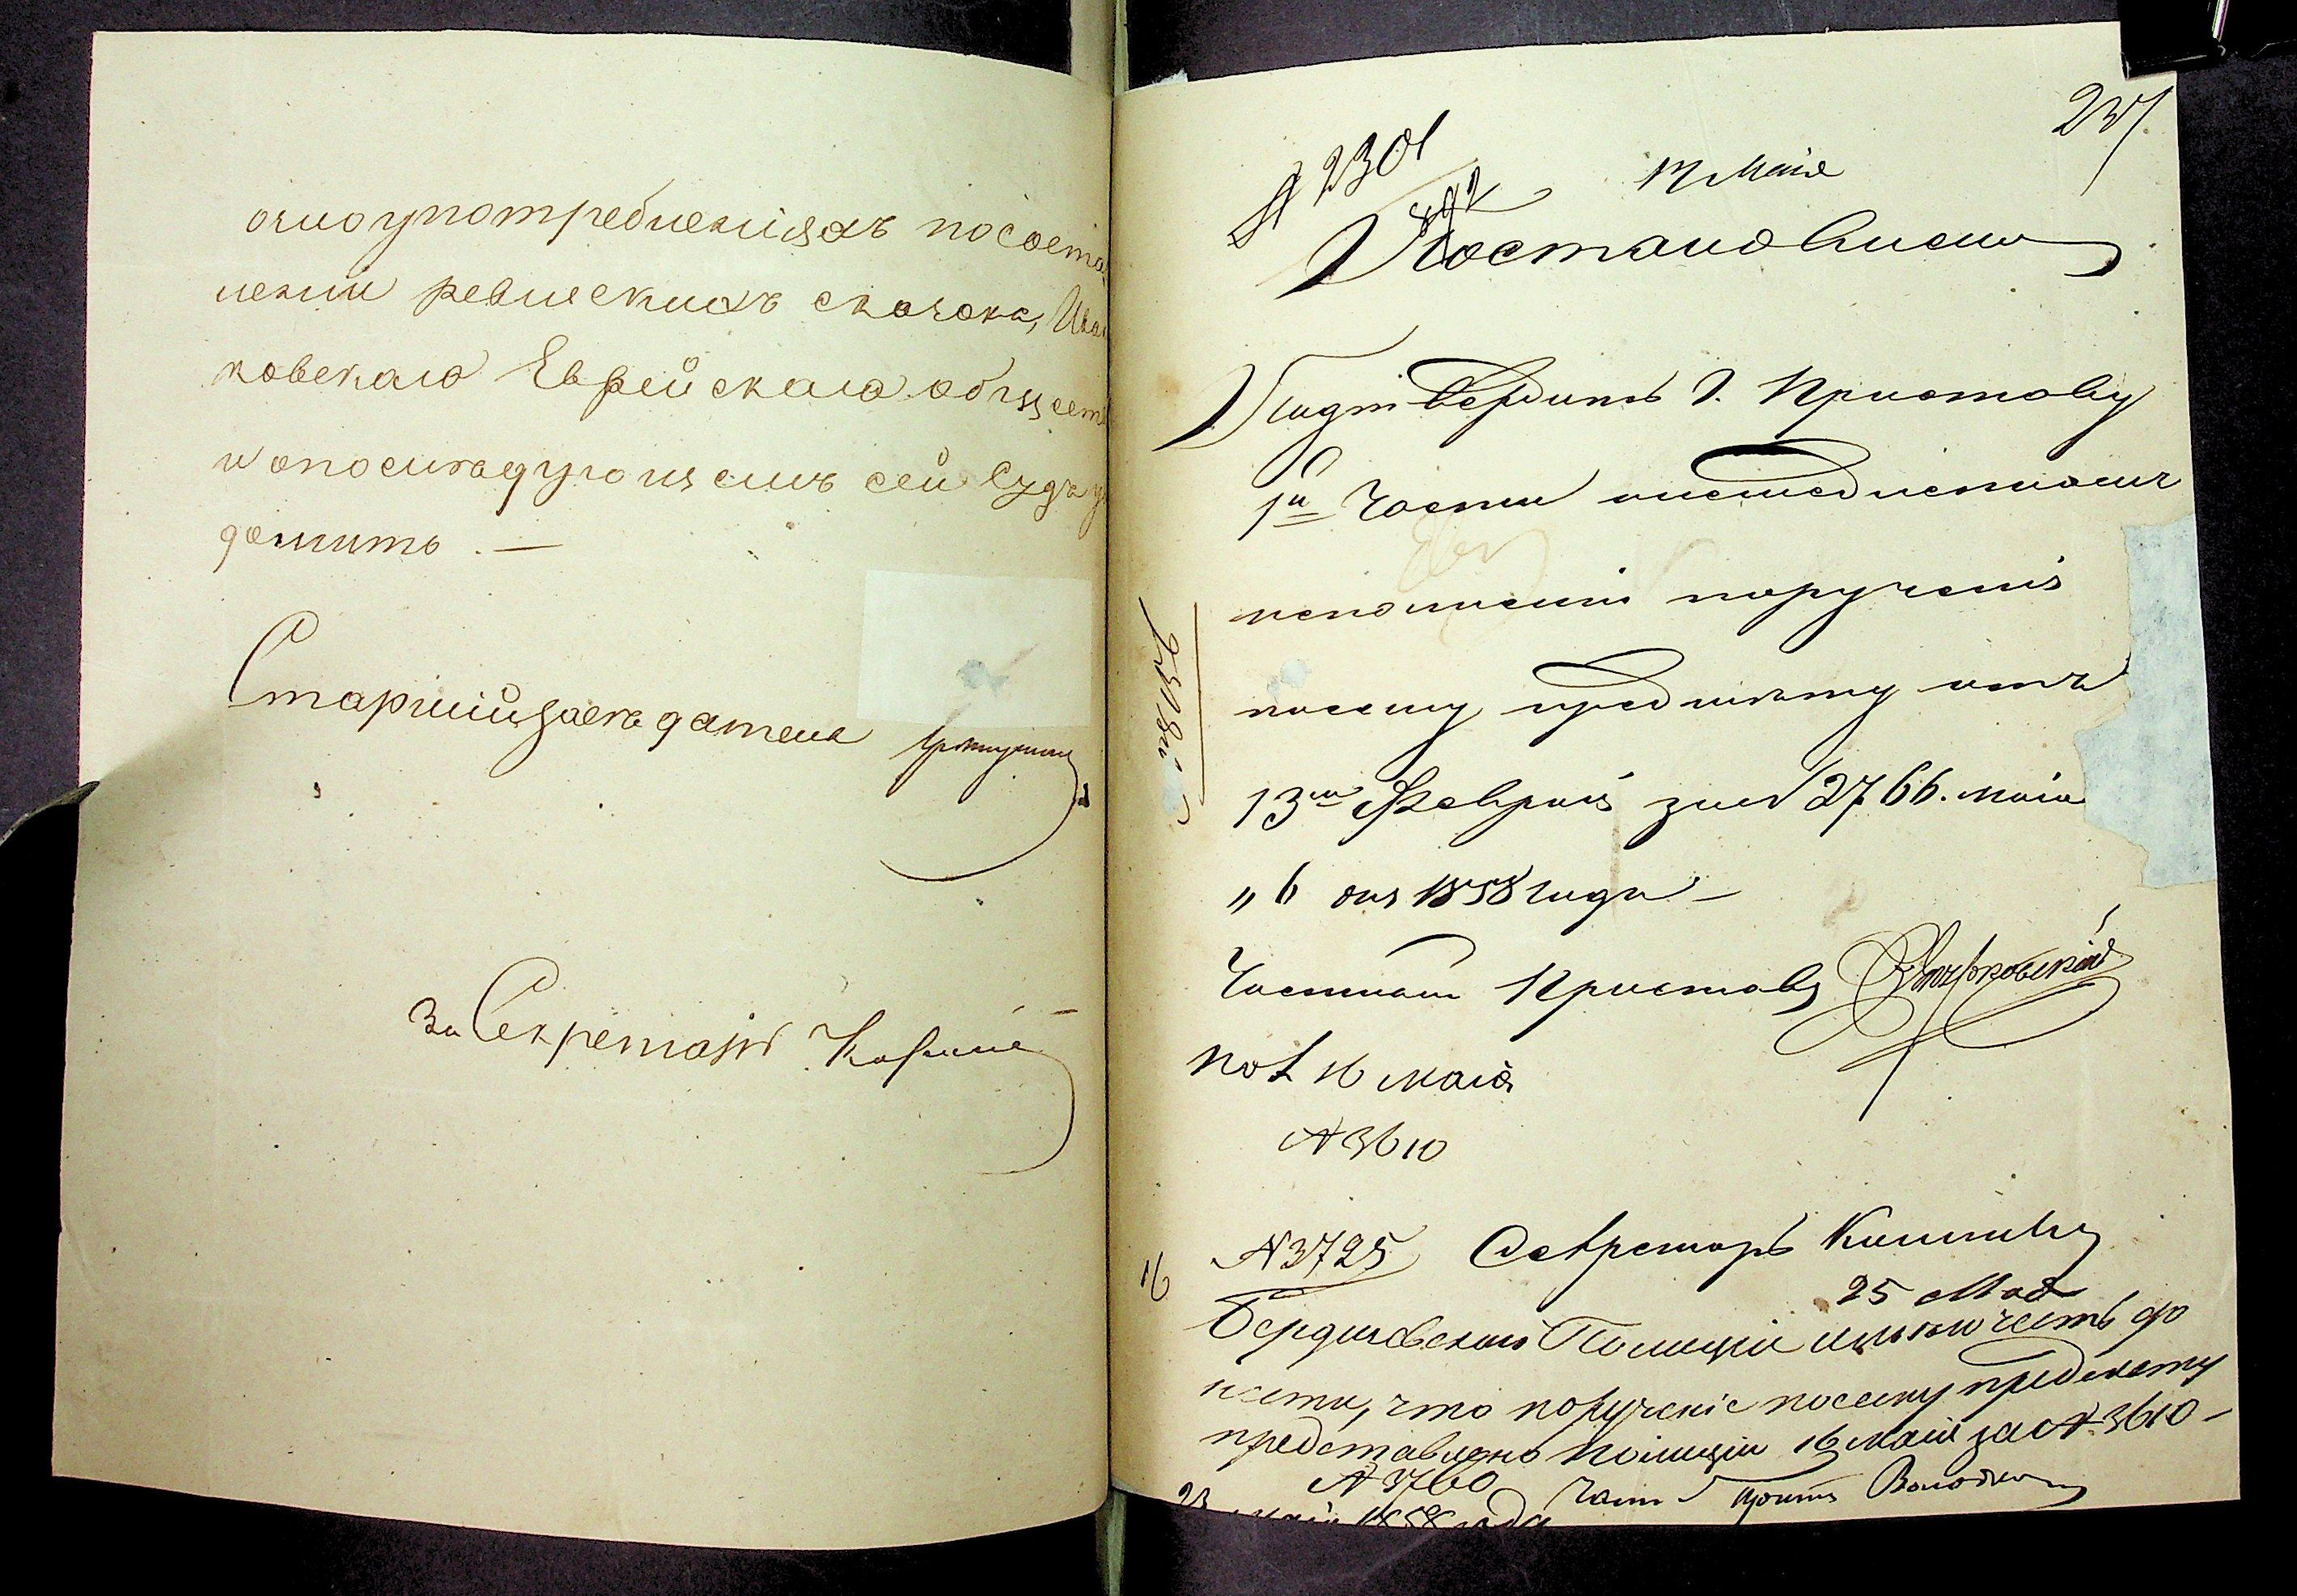 олоупотребленіяхъ по соста
леніи ревизскихъ сказокъ,
ковскаго Еврейскаго общест
и опослѣдующемъ сей Судъ у
домить. —
Старшій Засѣдатель
За Секретаря
237.
№ 2301
17 Мая
Постановлено
Подтвердить Г. Приставу
1й Части о немедленномъ
исполненіи порученія
по сему предмету отъ
13го Февраля за № 2766. маія
"6 дня 1858 года —
Частный Приставъ
Пол 16 маія
№ 3610
№ 3725 Секретарь
16
25 Мая
Бердичевской Полиціи имѣю честь до
нести, что порученіе по сему предмету
представлено полиціи 16 маія за № 3610 —
№ 3760
23 маія 1858 года